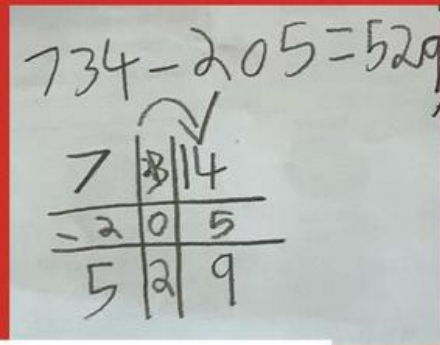 734-205=529
7 3 14
- 2 0 5
5 2 9